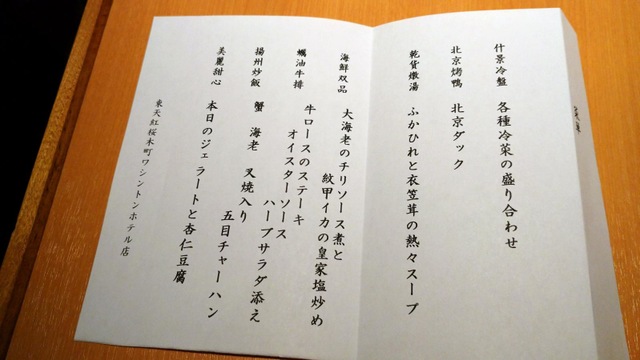 什景冷盤 各種冷菜の盛り合わせ
北京烤鴨 北京ダック
乾貨燉湯 ふかひれと衣笠茸の熱々スープ
海鮮双品 大海老のチリソース煮と
紋甲イカの皇家塩炒め
蠣油牛排 牛ロースのステーキ
オイスターソース
ハーブサラダ添え
揚州炒飯 蟹 海老 叉焼入り
五目チャーハン
美麗甜心 本日のジェラートと杏仁豆腐
東天紅桜木町ワシントンホテル店